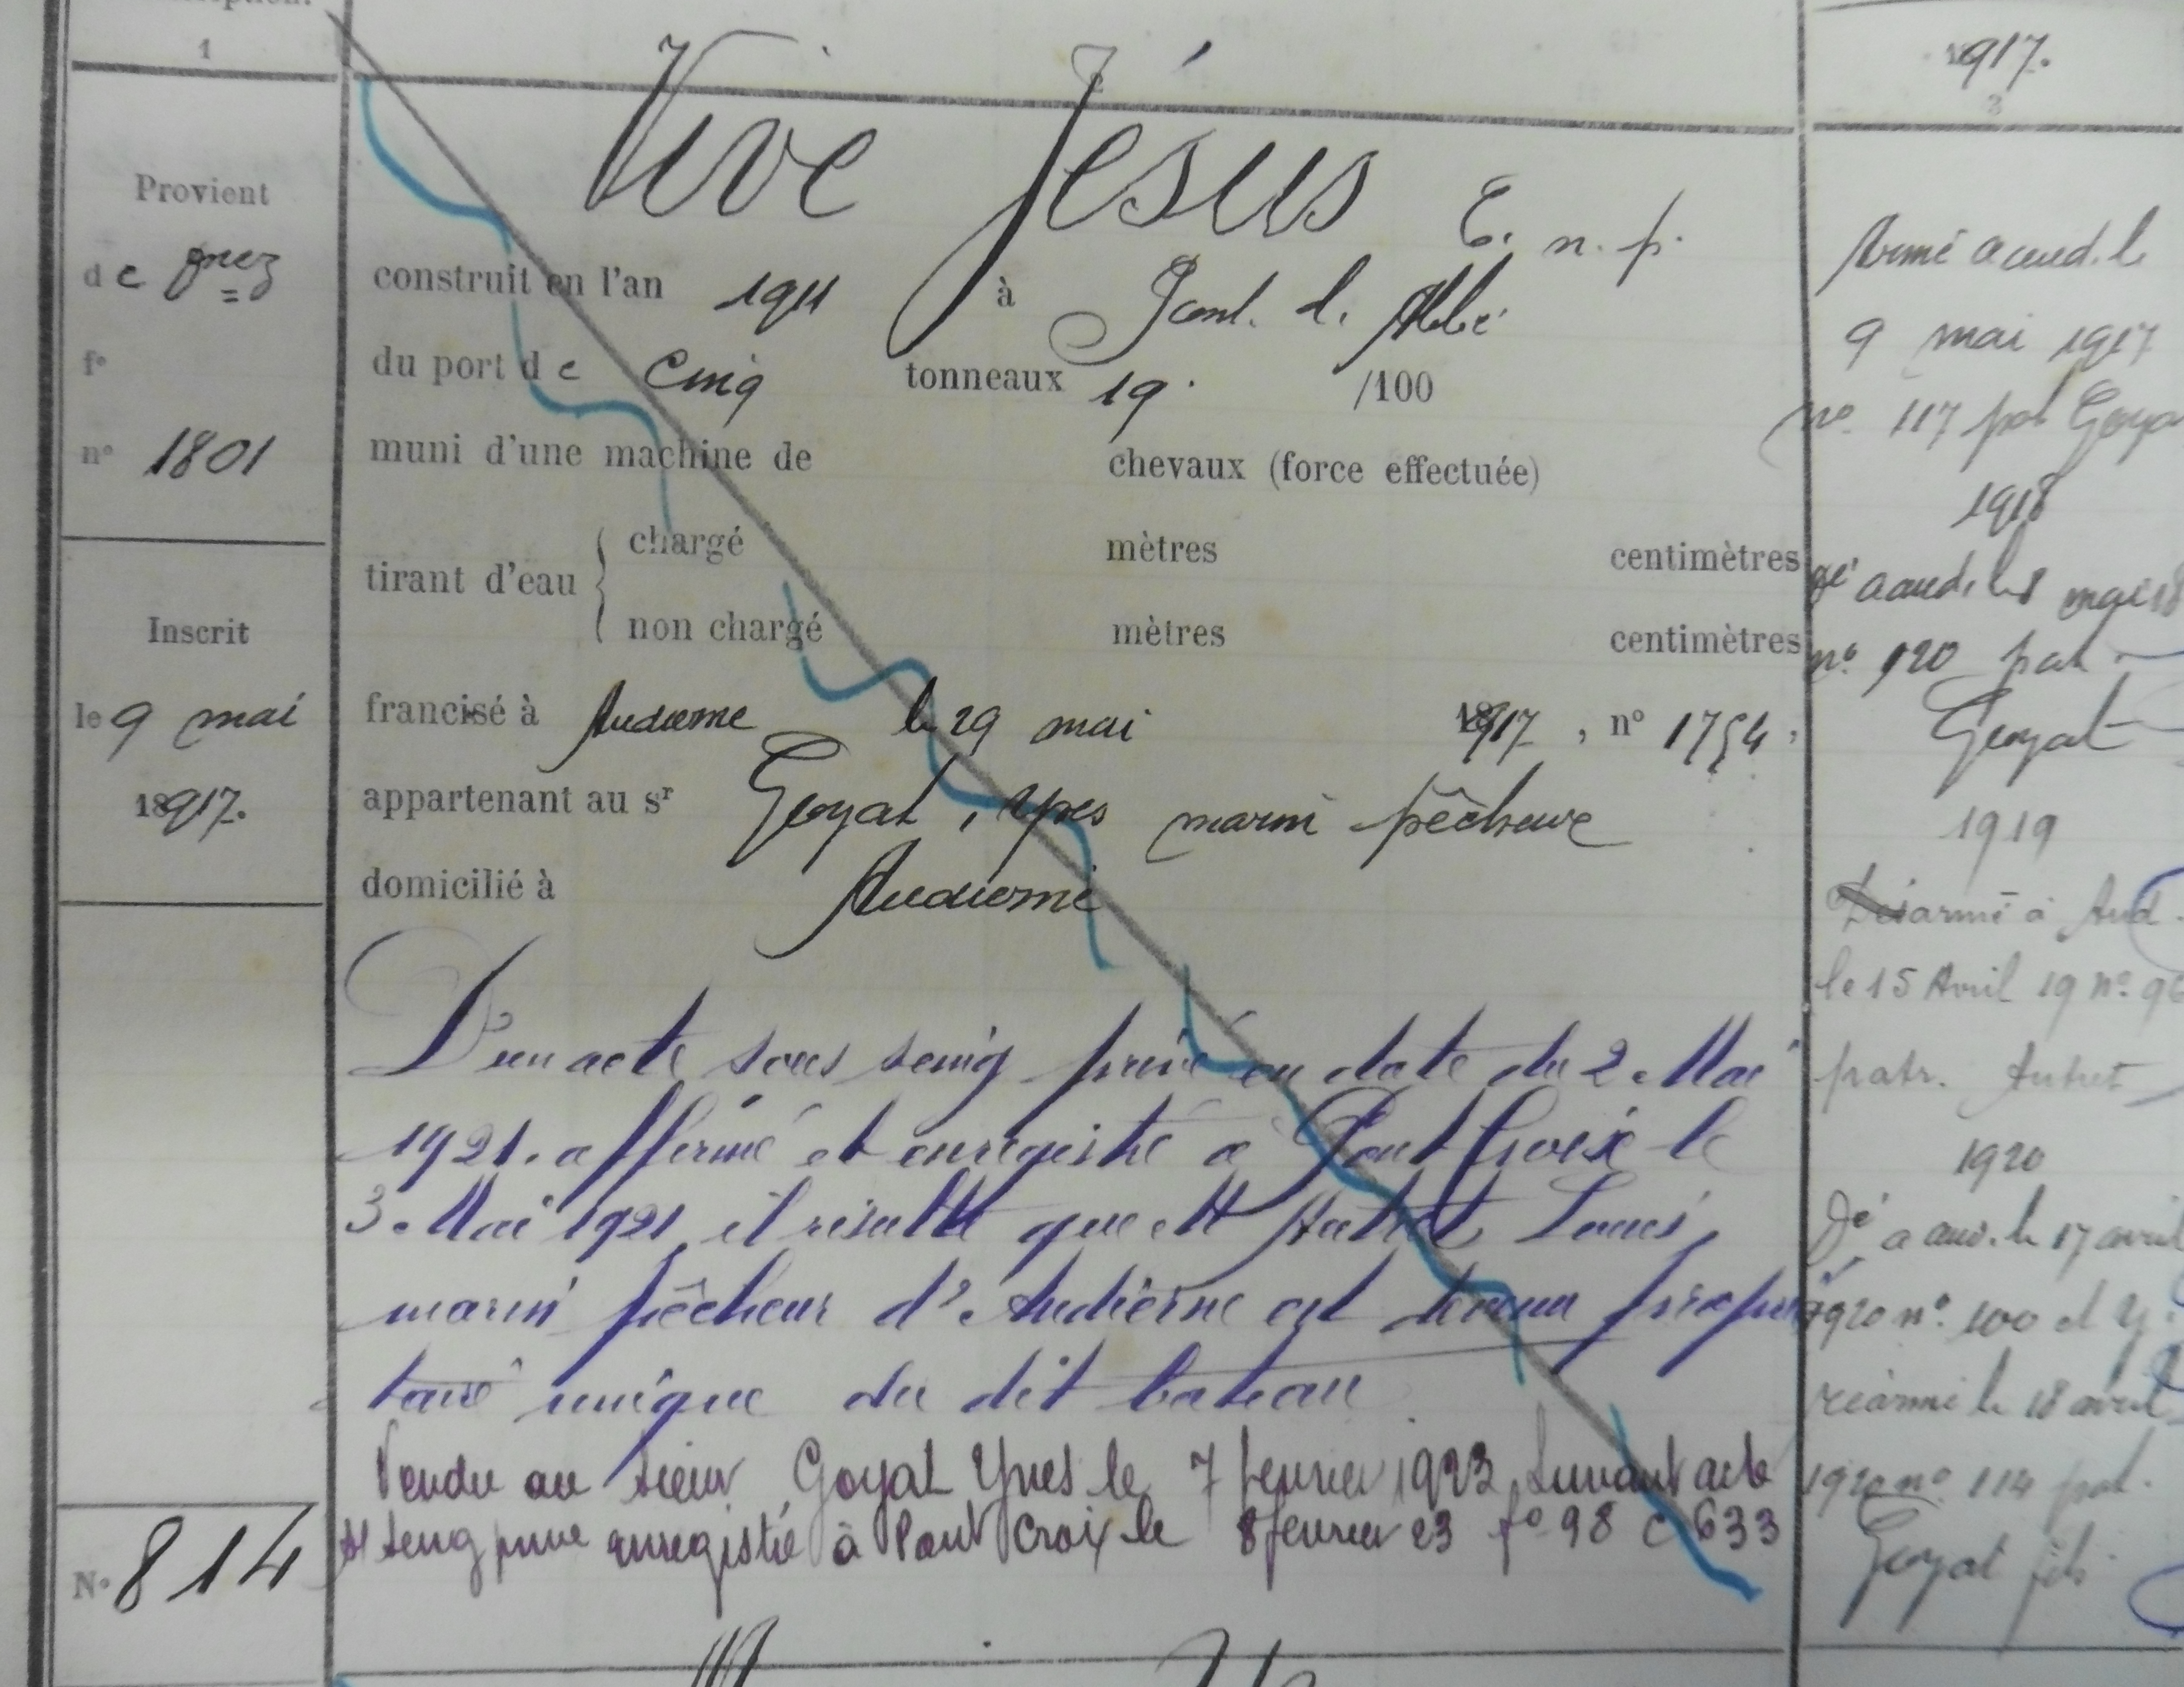 1
Provient
de gnez
fº
nº 1801
Inscrit
le 9 mai
18917.
Nº 814
2
Vive Jésus E. n. p.
construit en l'an 1911 à Pont. l. Abbé
du port de Cinq tonneaux 19 /100
muni d'une machine de chevaux (force effectuée)
tirant d'eau { chargé mètres centimètres
non chargé mètres centimètres
francisé à Audierne le 29 mai 1917, nº 1754,
appartenant au sr Goyat, Yves marin pêcheur
domicilié à Audierne
D'un acte sous seing privé en date du 2 Mai
1921. affirmé et enregistré à Pont Croix le
3 Mai 1921, il résulte que M Autret Louis,
marin pêcheur d'Audierne est devenu proprié
taire unique du dit bateau
Vendu au sieur Goyat Yves le 7 fevrier 1923 suivant acte
s/ seing privé enregistré à Pont Croix le 8 fevrier 23 fº 98 c 633
1917.
3
Armé à aud. le
9 mai 1917
nº 117 pat Goya
1918
gé à aud. le 8 mai 18
nº 120 pat.
Goyat
1919
Désarmé à Aud.
le 15 Avril 19 nº 96
patr. Autret
1920
Dé à aud. le 17 avril
1920 nº 100 et
réarmé le 18 avril
1920 nº 114 pat.
Goyat fils